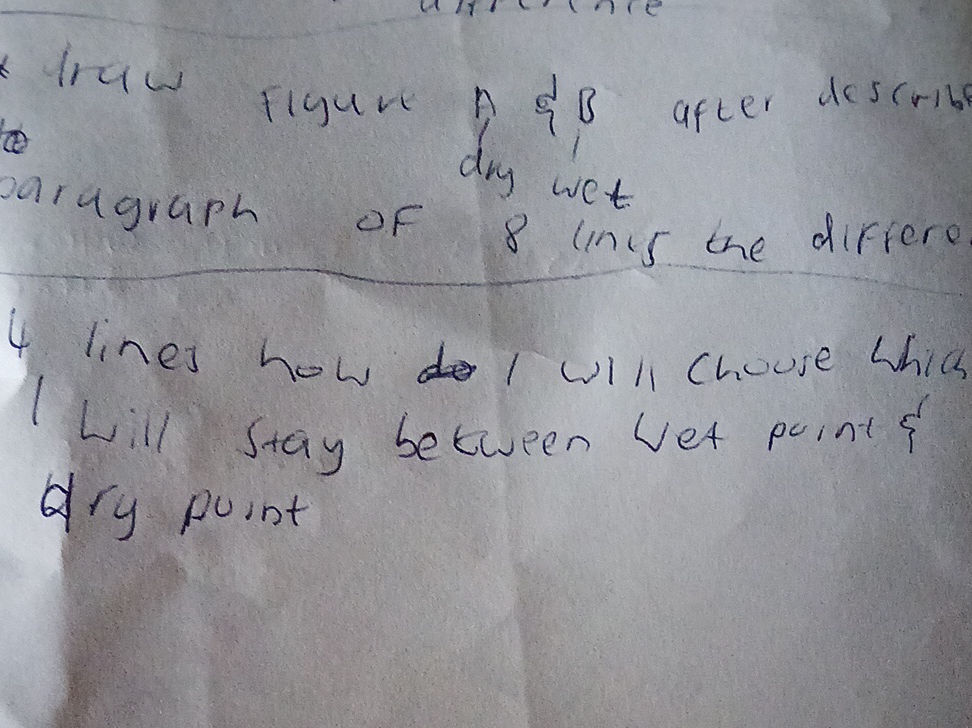 draw Figure A & B after describe
dry wet
paragraph OF 8 lines the differe
4 lines how do I will choose which
I will stay between wet point &
dry point